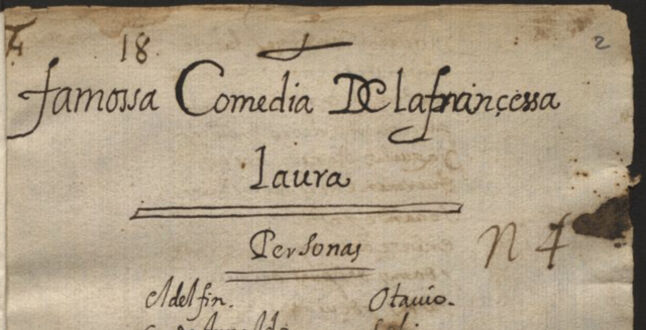 18 2
famossa Comedia De la françessa
laura
Personas
N 4
el delfin. Otauio.